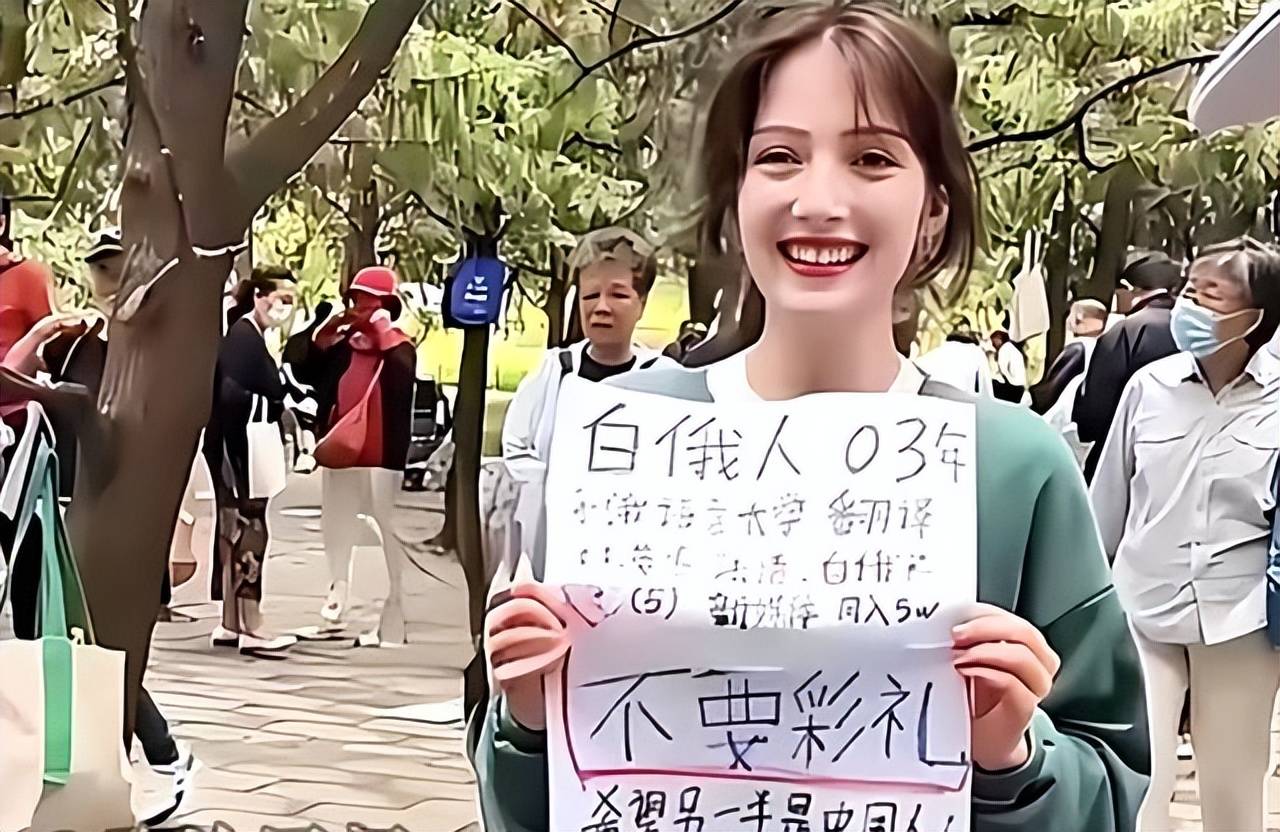 白俄人 03年
俄语言大学 翻译
生活. 白俄
(5) 新媒体 月入5w
不要彩礼
希望另一半是中国人!